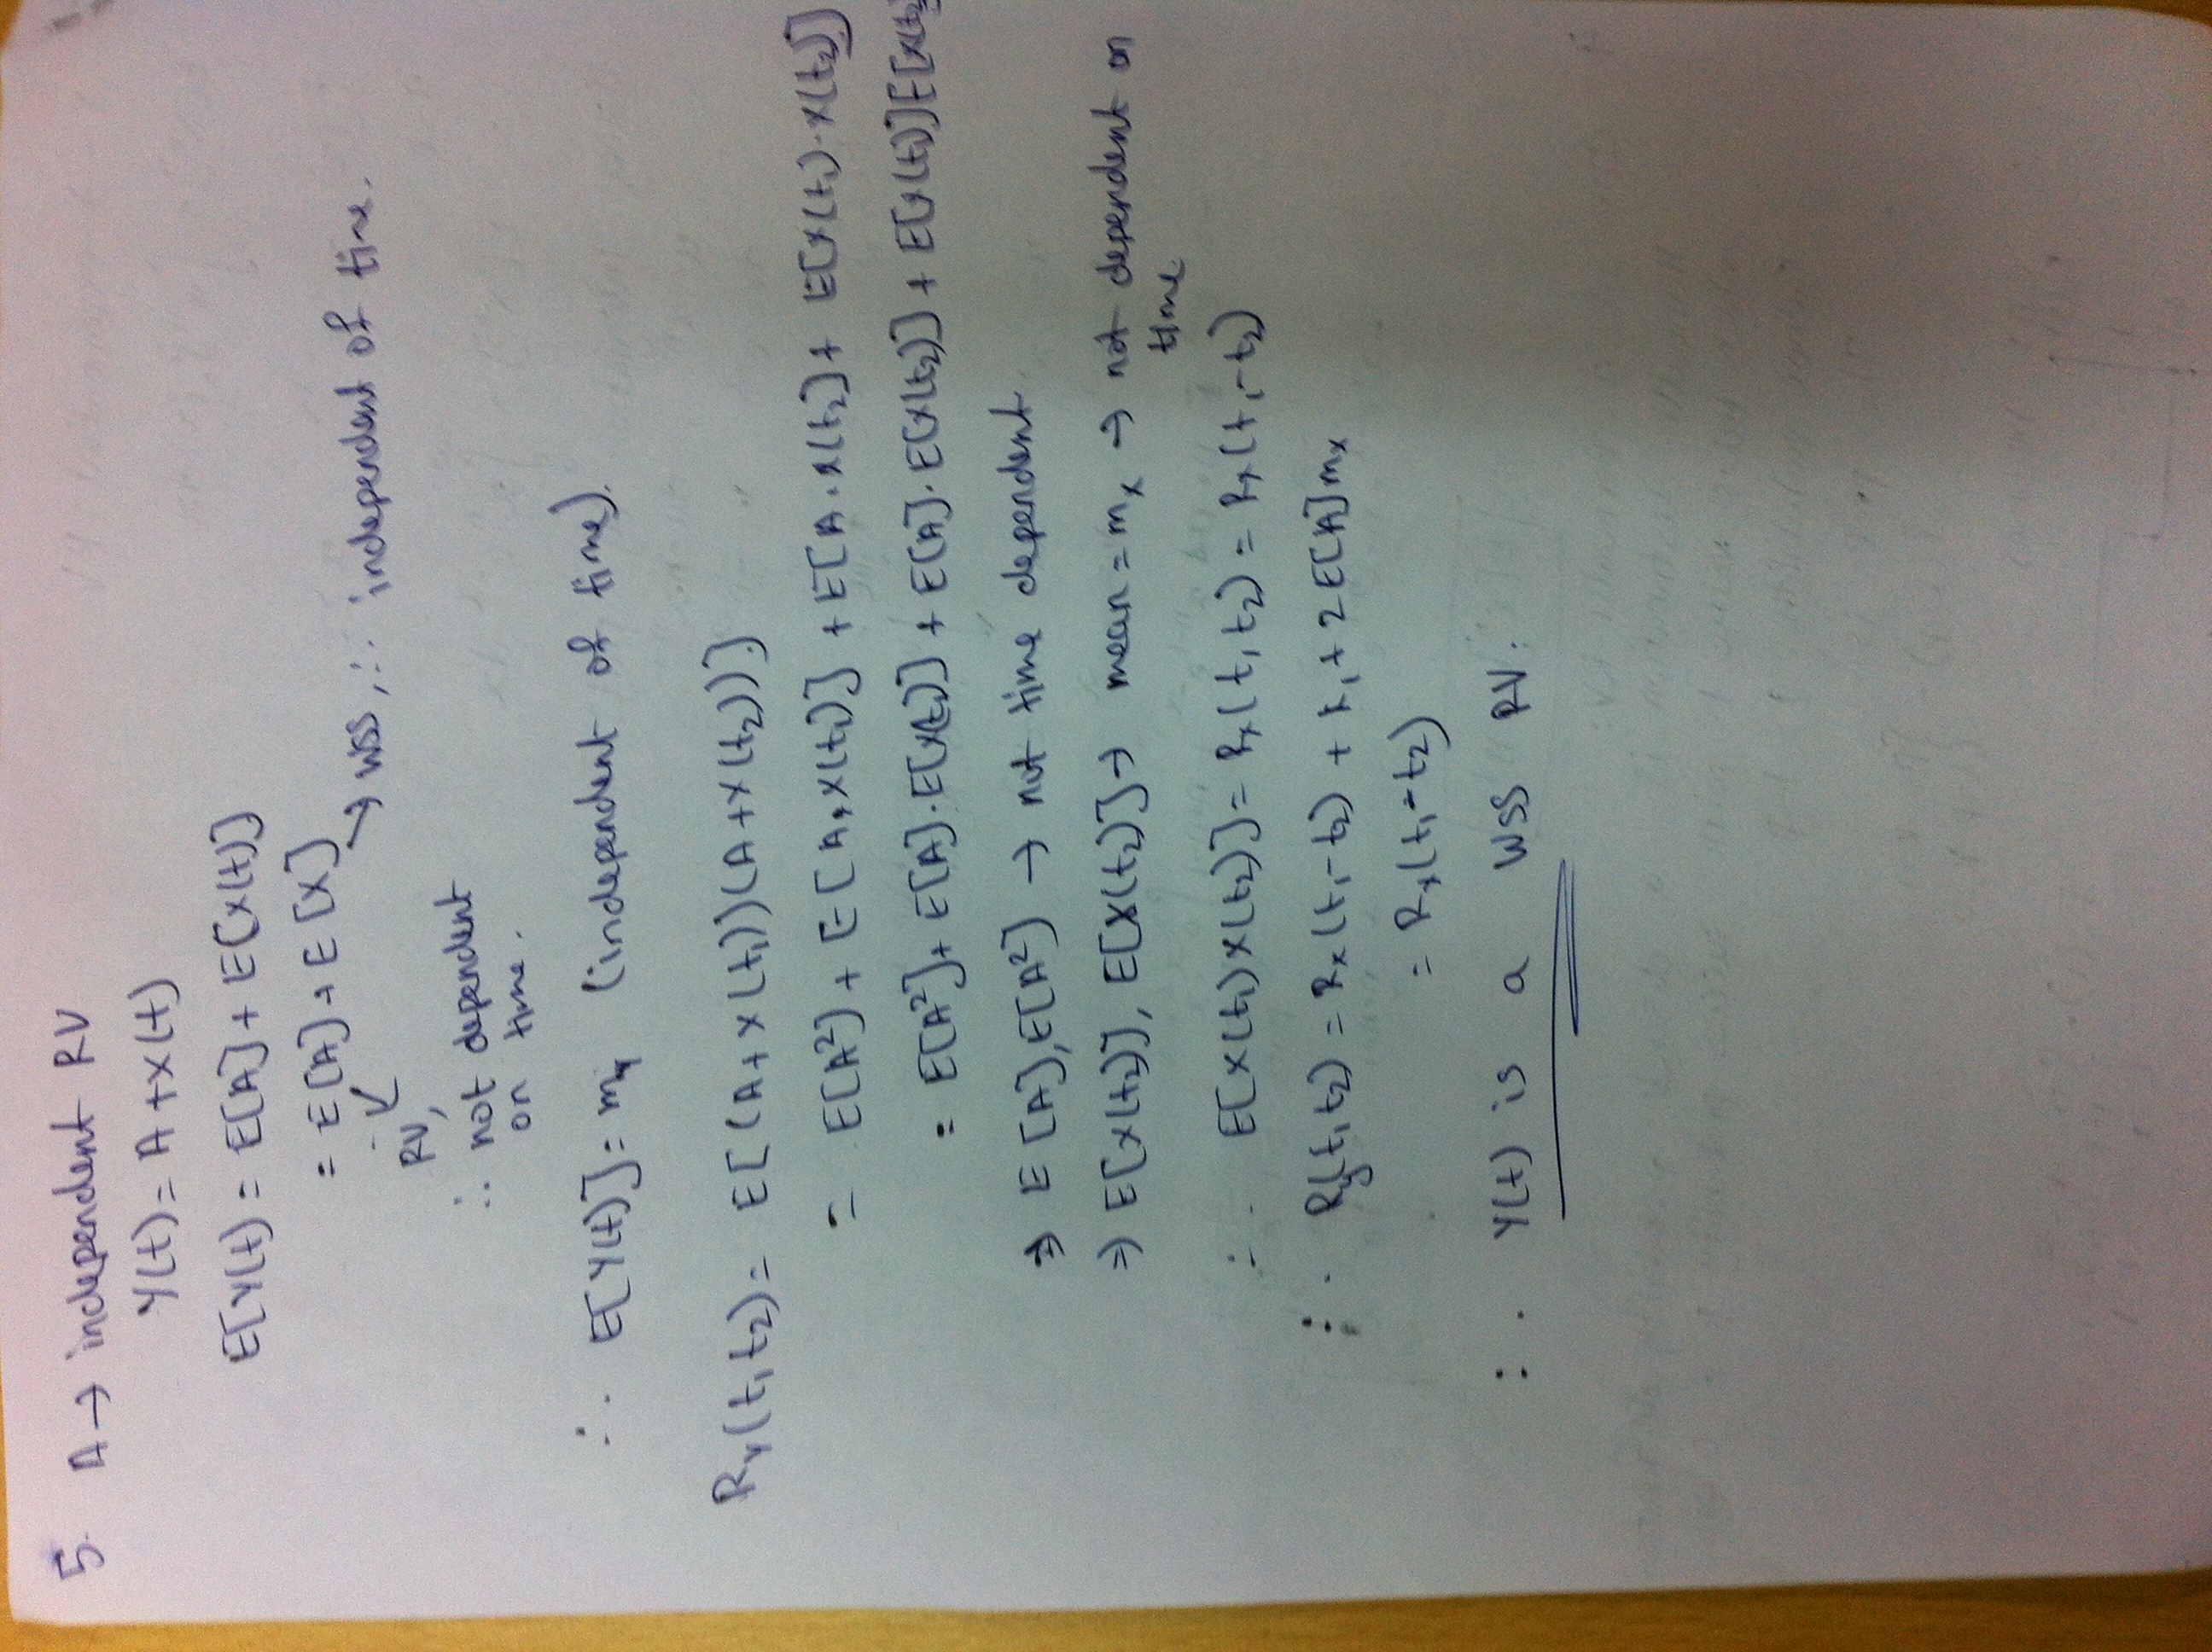 5. A → independent RV
Y(t) = A + X(t)
E[Y(t) = E[A] + E[X(t)]
= E[A] + E[X] → WSS, ∴ independent of time.
RV,
∴ not dependent
on time.
∴ E[Y(t)] = my (independent of time).
Ry(t1 t2) = E[(A + X(t1))(A + X(t2))]
= E[A²] + E[A, X(t1)] + E[A · X(t2] + E[X(t1) · X(t2)]
= E[A²] + E[A] · E[X(t1)] + E[A] · E[X(t2)] + E[X(t1)]E[X(t2)
⇒ E[A], E[A²] → not time dependent
⇒ E[X(t1)], E[X(t2)] → mean = mx → not dependent on
time.
∴ E[X(t1) X(t2)] = Rx(t1 t2) = Rx(t1 - t2)
∴ Ry(t1 t2) = Rx(t1 - t2) + k1 + 2E[A]mx
= Rx(t1 - t2)
∴ Y(t) is a WSS RV.